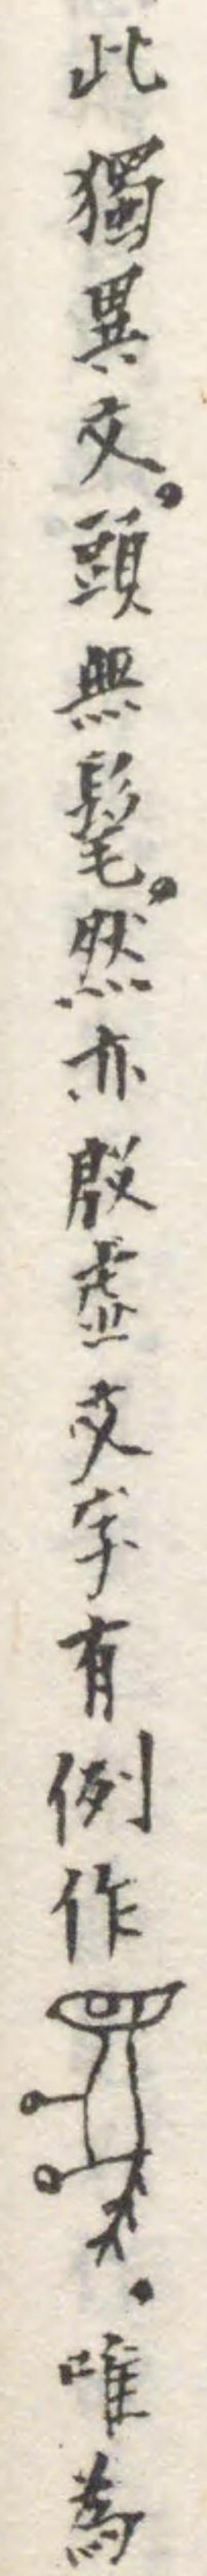 此獨異文。頭無髦。然亦殷虛文字有例作。唯為